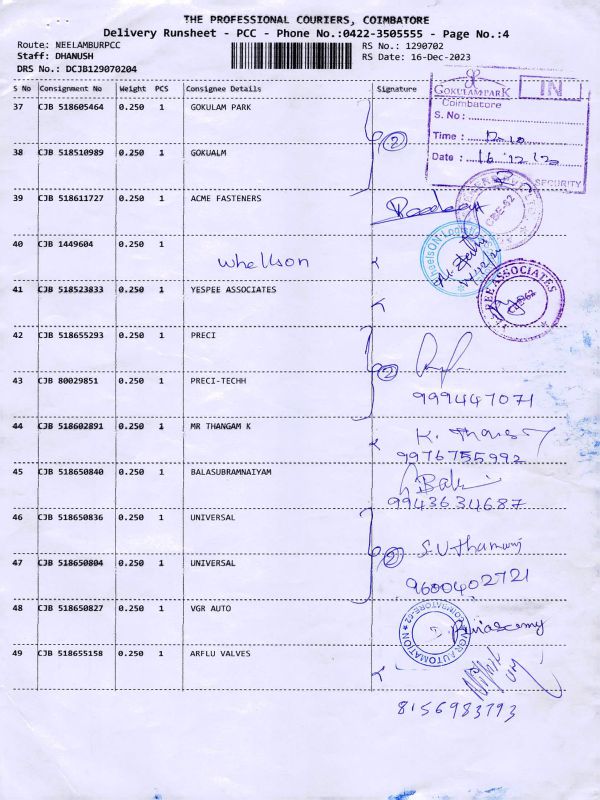 THE PROFESSIONAL COURIERS, COIMBATORE
Delivery Runsheet - PCC - Phone No.:0422-3505555 - Page No.:4
Route: NEELAMBURPCC
RS No.: 1290702
Staff: DHANUSH
RS Date: 16-Dec-2023
DRS No.: DCJB129070204
S No Consignment No Weight PCS Consignee Details Signature
GOKULAM PARK IN
Coimbatore
S. No :
Time : 12.10
Date : 16 12
SECURITY
37 CJB 518605464 0.250 1 GOKULAM PARK
2
38 CJB 518510989 0.250 1 GOKUALM
39 CJB 518611727 0.250 1 ACME FASTENERS
CBE-62
40 CJB 1449604 0.250 1
Whellson
41 CJB 518523833 0.250 1 YESPEE ASSOCIATES
ASSOCIATES
42 CJB 518655293 0.250 1 PRECI
2
43 CJB 80029851 0.250 1 PRECI-TECHH
999447071
44 CJB 518602891 0.250 1 MR THANGAM K
9976755992
45 CJB 518650840 0.250 1 BALASUBRAMNAIYAM
Bala
9943634687
46 CJB 518650836 0.250 1 UNIVERSAL
2
47 CJB 518650804 0.250 1 UNIVERSAL
9600402721
48 CJB 518650827 0.250 1 VGR AUTO
COIMBATORE-62
AUTOMATION
49 CJB 518655158 0.250 1 ARFLU VALVES
8156983793